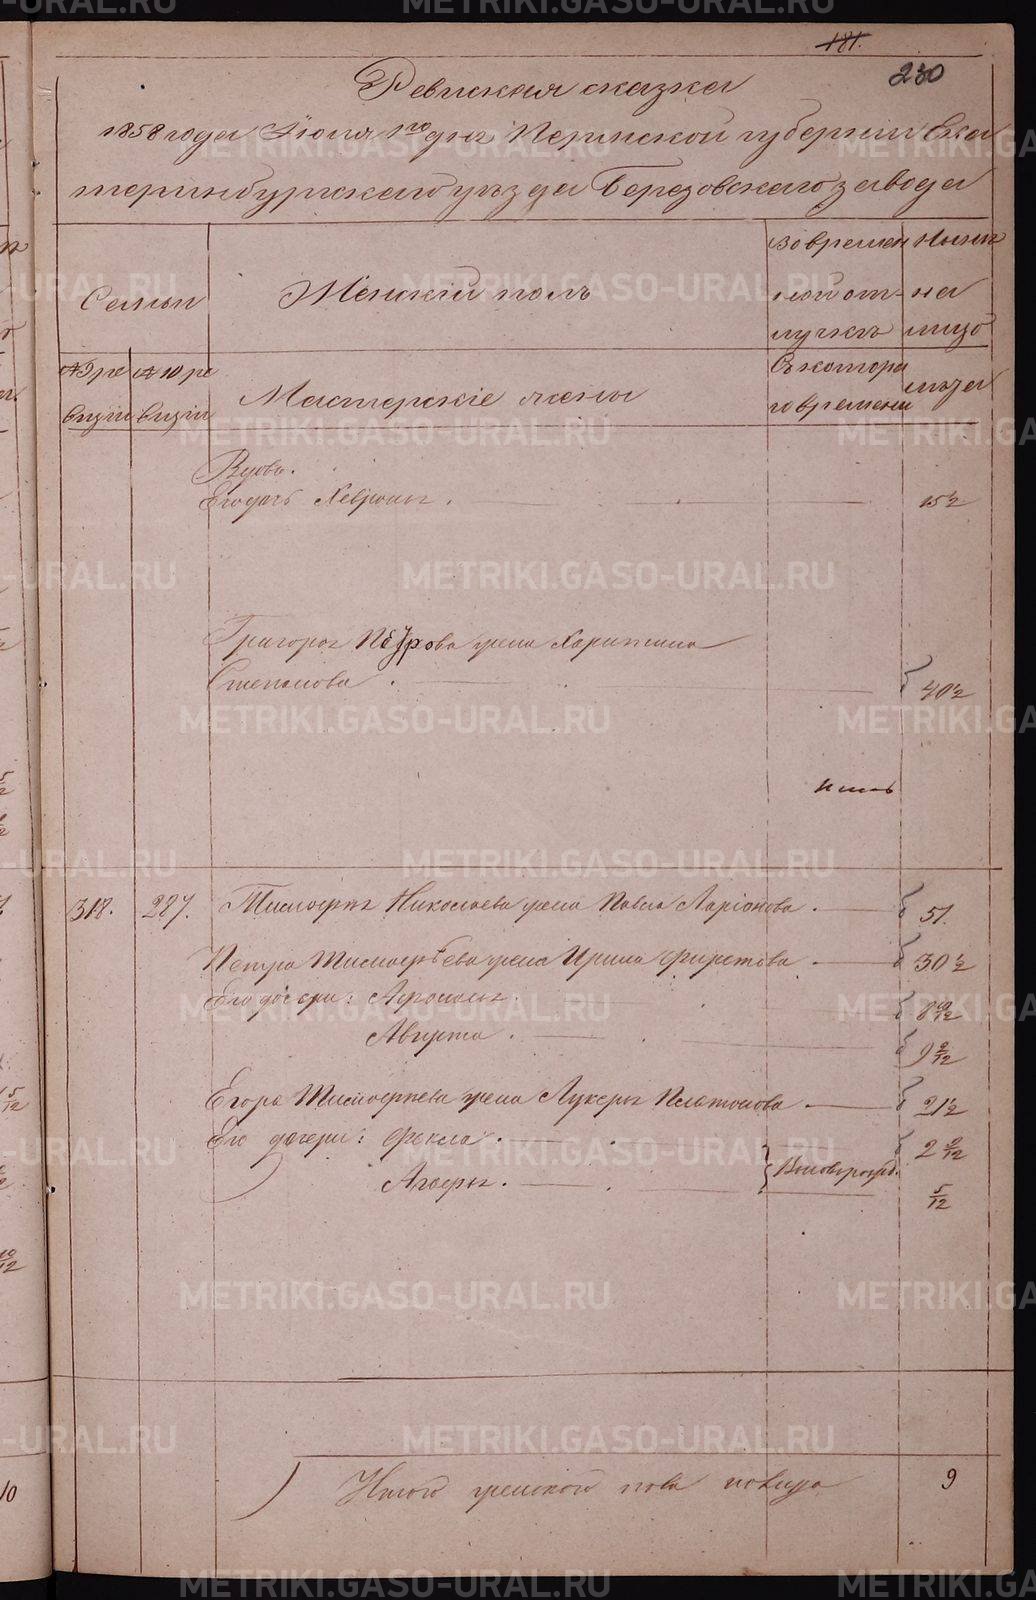 181.
230
Ревизская сказка
1858 года Июня 1го дня Пермской губернии Ека
теринбургскаго уѣзда Березовскаго завода
Семьи
Женскій полъ
Во времен
ной от-
лучкѣ
Нынѣ
на
лицо
№ 9 ре
визіи
№ 10 ре
визіи
Мастерскіе жены
Съ котора
го времени
лѣта
Вдова.
Его дочь Хевронья. 15½
Григорья Петрова жена Харитина
Степанова. 40½
318. 287. Тимофея Николаева жена Павла Ларіонова. 51.
Петра Тимофѣева жена Ирина Фирстова 30½
Его дочери: Афросинья. 8 10/12
Августа. 9 2/12
Егора Тимофеева жена Лукерья Платонова 21½
Его дочери: Фекла. 2 2/12
Агафья. Вновьрожд. 5/12
Итого женского пола налицо 9
METRIKI.GASO-URAL.RU